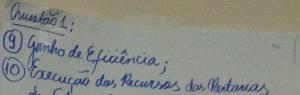 Questão 1:
⑨ Ganho de Eficiência;
⑩ Execução dos Recursos das Reitorias